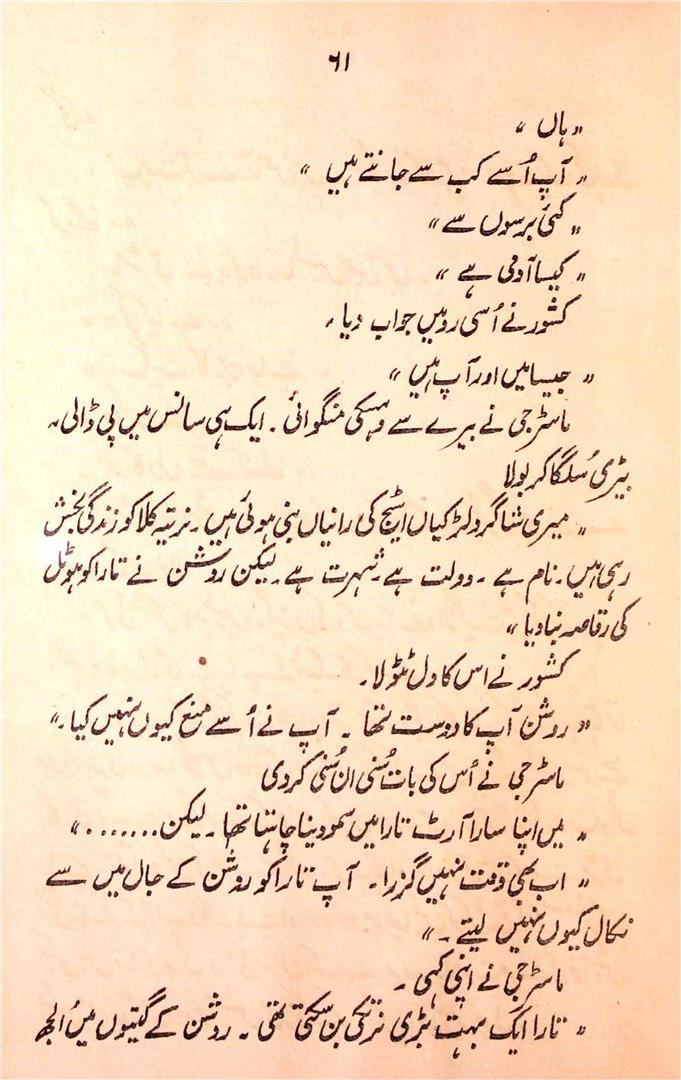 ۶۱
„ ہاں “
„ آپ اُسے کب سے جانتے ہیں “
„ کئی برسوں سے “
„ کیسا آدمی ہے “
کشور نے اُسی رو میں جواب دیا ۔
„ جیسا میں اور آپ ہیں “
ماسٹر جی نے بیرے سے وہسکی منگوائی ۔ ایک ہی سانس میں پی ڈالی ۔
بیڑی سُلگا کر بولا
„ میری شاگرد لڑکیاں اسٹیج کی رانیاں بنی ہوئی ہیں ۔ نرتیہ کلا کو زندگی بخش
رہی ہیں ۔ نام ہے ۔ دولت ہے ۔ شہرت ہے ۔ لیکن روشن نے تارا کو ہوٹل
کی رقاصہ بنا دیا “
کشور نے اس کا دل ٹٹولا ۔
„ روشن آپ کا دوست تھا ۔ آپ نے اُسے منع کیوں نہیں کیا ۔ “
ماسٹر جی نے اُس کی بات سُنی ان سُنی کر دی
„ میں اپنا سارا آرٹ تارا میں سمو دینا چاہتا تھا ۔ لیکن ....... “
„ اب بھی وقت نہیں گزرا ۔ آپ تارا کو روشن کے جال میں سے
نکال کیوں نہیں لیتے ۔ “
ماسٹر جی نے اپنی کہی ۔
„ تارا ایک بہت بڑی نرتکی بن سکتی تھی ۔ روشن کے گیتوں میں اُلجھ